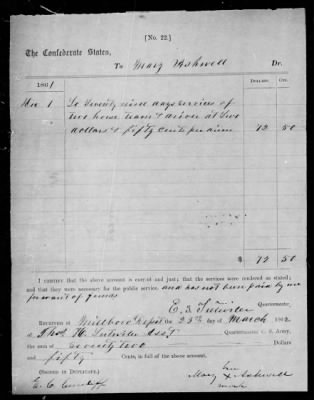 [No. 22.]
The Confederate States,
To Mary Ashwell Dr.
1861 Dollars. Cts.
Dec 1 To Twenty nine days services of
two horse team & driver at Two
dollars & fifty cents per diem 72 50
$ 72 50
I certify that the above account is correct and just; that the services were rendered as stated;
and that they were necessary for the public service and has not been paid by me
for want of funds
Quartermaster.
Received at Millboro Depot the 25th day of March 1862,
of Thos H. Asst Quartermaster C. S. Army,
the sum of Seventy two Dollars
and fifty Cents, in full of the above account.
(Signed in Duplicate.) her
Mary X Ashwell
mark